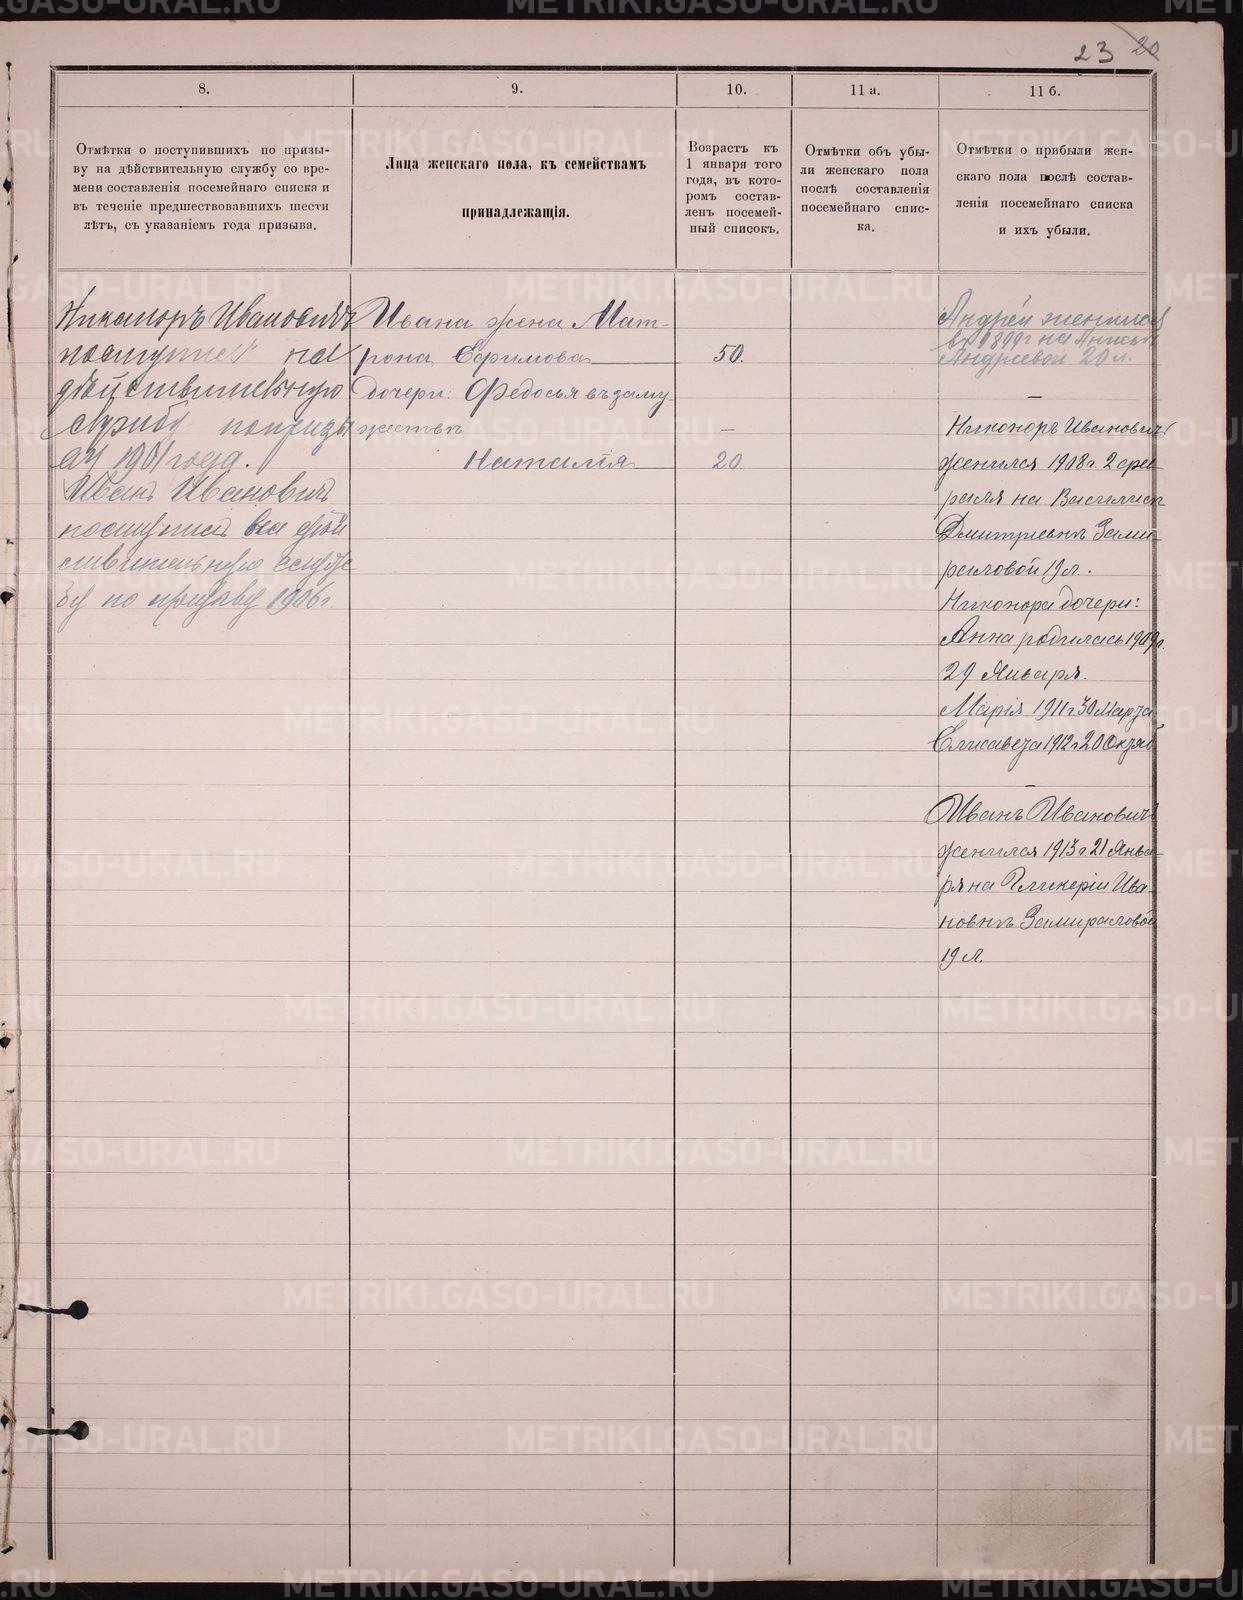 23 20
8.
9.
10.
11 а.
11 б.
Отмѣтки о поступившихъ по призы-
ву на дѣйствительную службу со вре-
мени составленія посемейнаго списка и
въ теченіе предшествовавшихъ шести
лѣтъ, съ указаніемъ года призыва.
Лица женскаго пола, къ семействамъ
принадлежащія.
Возрастъ къ
1 января того
года, въ кото-
ромъ состав-
ленъ посемей-
ный списокъ.
Отмѣтки объ убы-
ли женскаго пола
послѣ составленія
посемейнаго спис-
ка.
Отмѣтки о прибыли жен-
скаго пола послѣ состав-
ленія посемейнаго списка
и ихъ убыли.
Никаноръ Ивановичъ
поступилъ на
дѣйствительную
службу по призы
ву 1901 года.
Иванъ Ивановичъ
поступилъ на дѣй
ствительную служ
бу по призыву 1906 г.
Ивана жена Мат-
рона Ефимова 50.
дочери: Федосья въ заму
жествѣ —
Наталія 20
Андрей женился
въ 1899 г на Анисьи
Андреевой 20 л.
—
Никоноръ Ивановичъ
женился 1908 г. 2 фев
раля на Василисѣ
Дмитріевнѣ Зами
раловой 19 л.
Никонора дочери:
Анна родилась 1909 г.
29 Января.
Марія 1911 г 30 Марта
Елисавета 1912 г 20 Октяб
—
Иванъ Ивановичъ
женился 1913 г 21 Янва-
ря на Гликеріи Ива-
новнѣ Замираловой
19 л.
METRIKI.GASO-URAL.RU